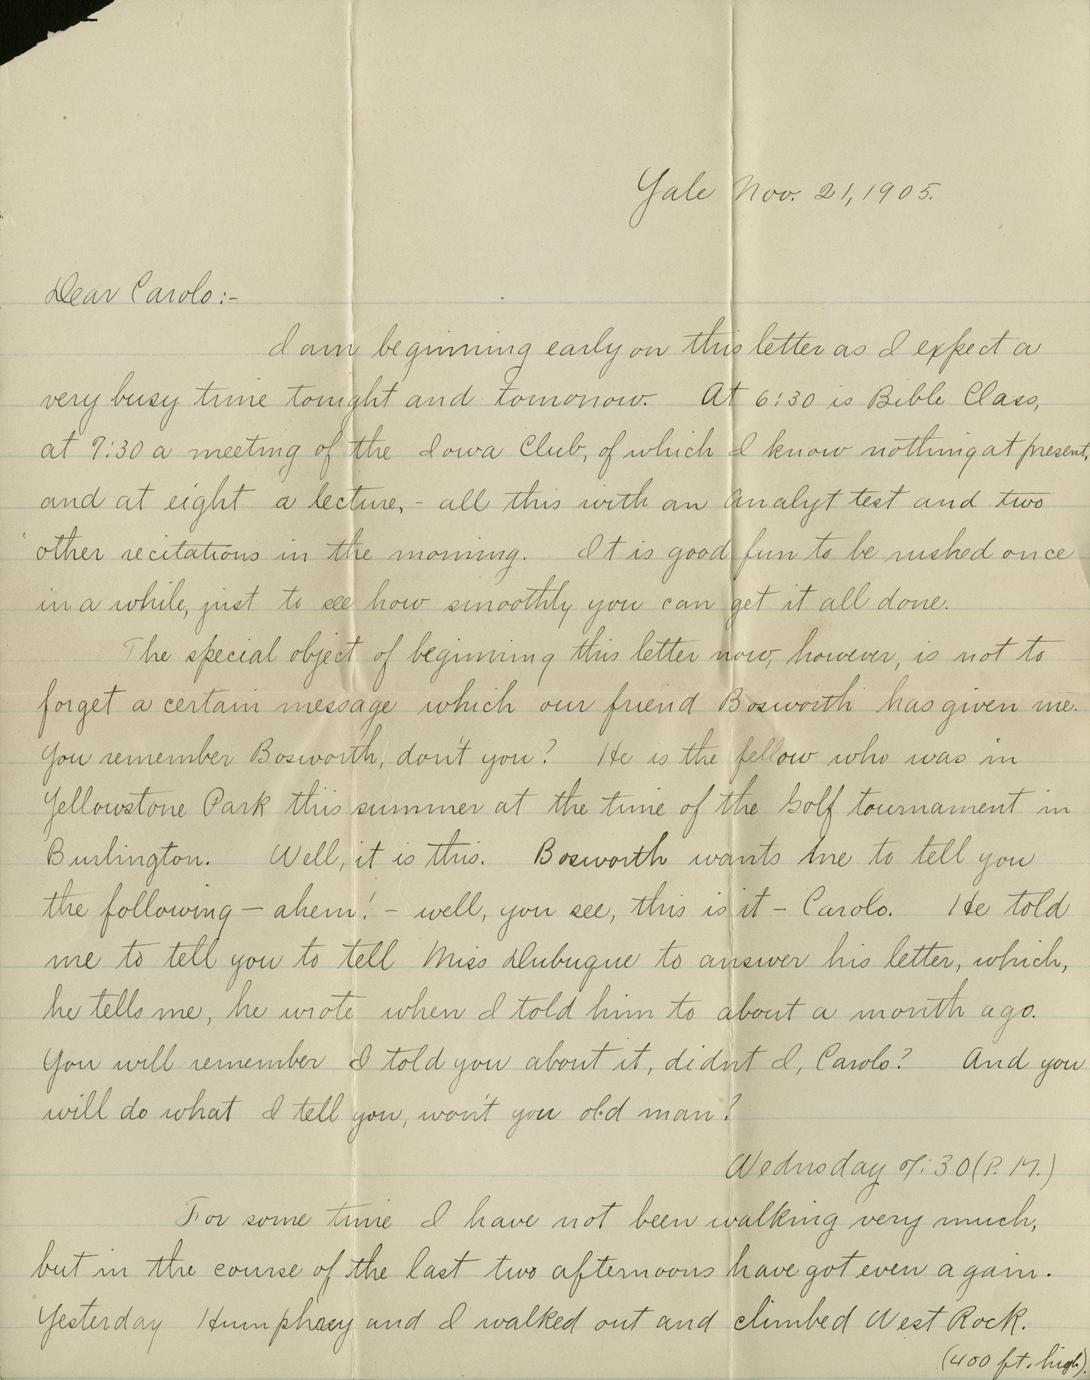 Yale Nov. 21, 1905.
Dear Carolo:-
I am beginning early on this letter as I expect a
very busy time tonight and tomorrow. At 6:30 is Bible Class,
at 7:30 a meeting of the Iowa Club, of which I know nothing at present,
and at eight a lecture, - all this with an Analyt test and two
other recitations in the morning. It is good fun to be rushed once
in a while, just to see how smoothly you can get it all done.
The special object of beginning this letter now, however, is not to
forget a certain message which our friend Bosworth has given me.
You remember Bosworth, don't you? He is the fellow who was in
Yellowstone Park this summer at the time of the Golf tournament in
Burlington. Well, it is this. Bosworth wants me to tell you
the following — ahem! - well, you see, this is it - Carolo. He told
me to tell you to tell Miss Dubuque to answer his letter, which,
he tells me, he wrote when I told him to about a month ago.
You will remember I told you about it, didn't I, Carolo? And you
will do what I tell you, won't you old man?
Wednsday 7:30 (P.M.)
For some time I have not been walking very much,
but in the course of the last two afternoons have got even again.
Yesterday Humphrey and I walked out and climbed West Rock.
(400 ft. high).